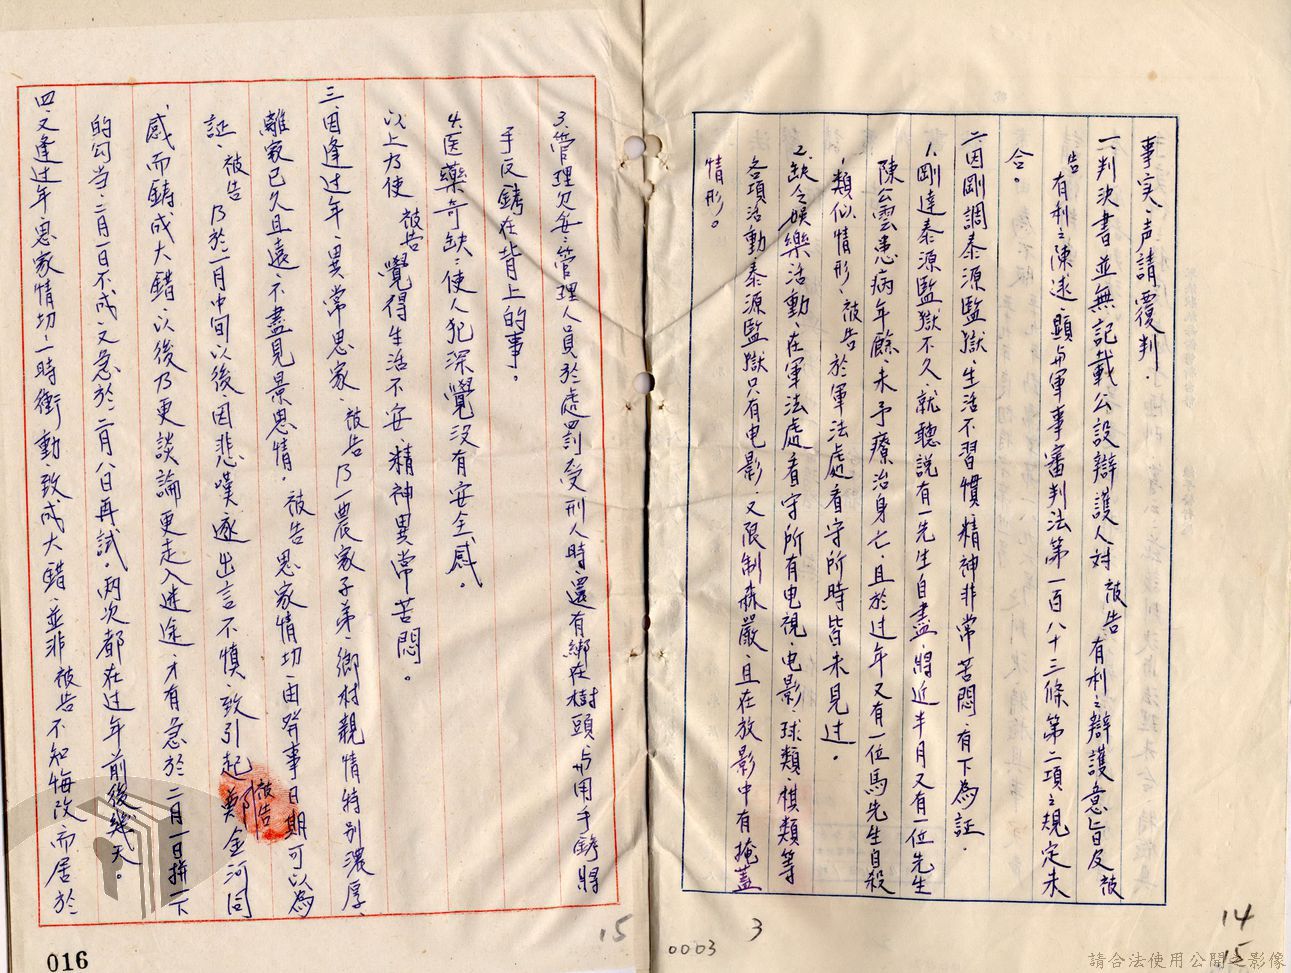 事实、声請覆判.
一、判決書並無記載公設辯護人对 被告 有利之辯護意旨及被
告 有利之陳述、顕与軍事審判法第一百八十三條第二項之規定未
合。
二、因剛調泰源監獄.生活不習慣.精神非常苦悶.有下為証.
1.剛達泰源監獄不久、就聽說有一先生自盡.將近半月又有一位先生
陳公雲患病年餘、未予療治身亡、且於过年又有一位馬先生自殺
、類似情形、被告於軍法處看守所時皆未見过.
2.缺乏娛樂活動、在軍法處看守所有电視、电影、球類、棋類等
各項活動泰源監獄只有电影、又限制森嚴、且在放影中有掩蓋
情形。
3
0003
14
15
3.管理欠妥:管理人員於處罰受刑人時、還有綁在樹頭、与用手銬將
手反銬在背上的事。
4.医藥奇缺:使人犯深覺沒有安全感。
以上乃使 被告 覺得生活不安.精神異常苦悶。
三、因逢过年、異常思家、被告乃一農家子弟、鄉村親情特別濃厚、
離家已久且遠、不盡見景思情。被告思家情切.由発事日期可以為
証、被告乃於一月中旬以後、因悲嘆逐出言不慎、致引起 被告 鄭金河同
感而鑄成大錯、以後乃更談論更走入迷途、才有急於二月一日拼一下
的勾当.二月一日不成、又急於二月八日再試。兩次都在过年前後幾天。
四、又逢过年思家情切、一時衝動、致成大錯、並非被告不知悔改而居於
15
016
請合法使用公開之影像